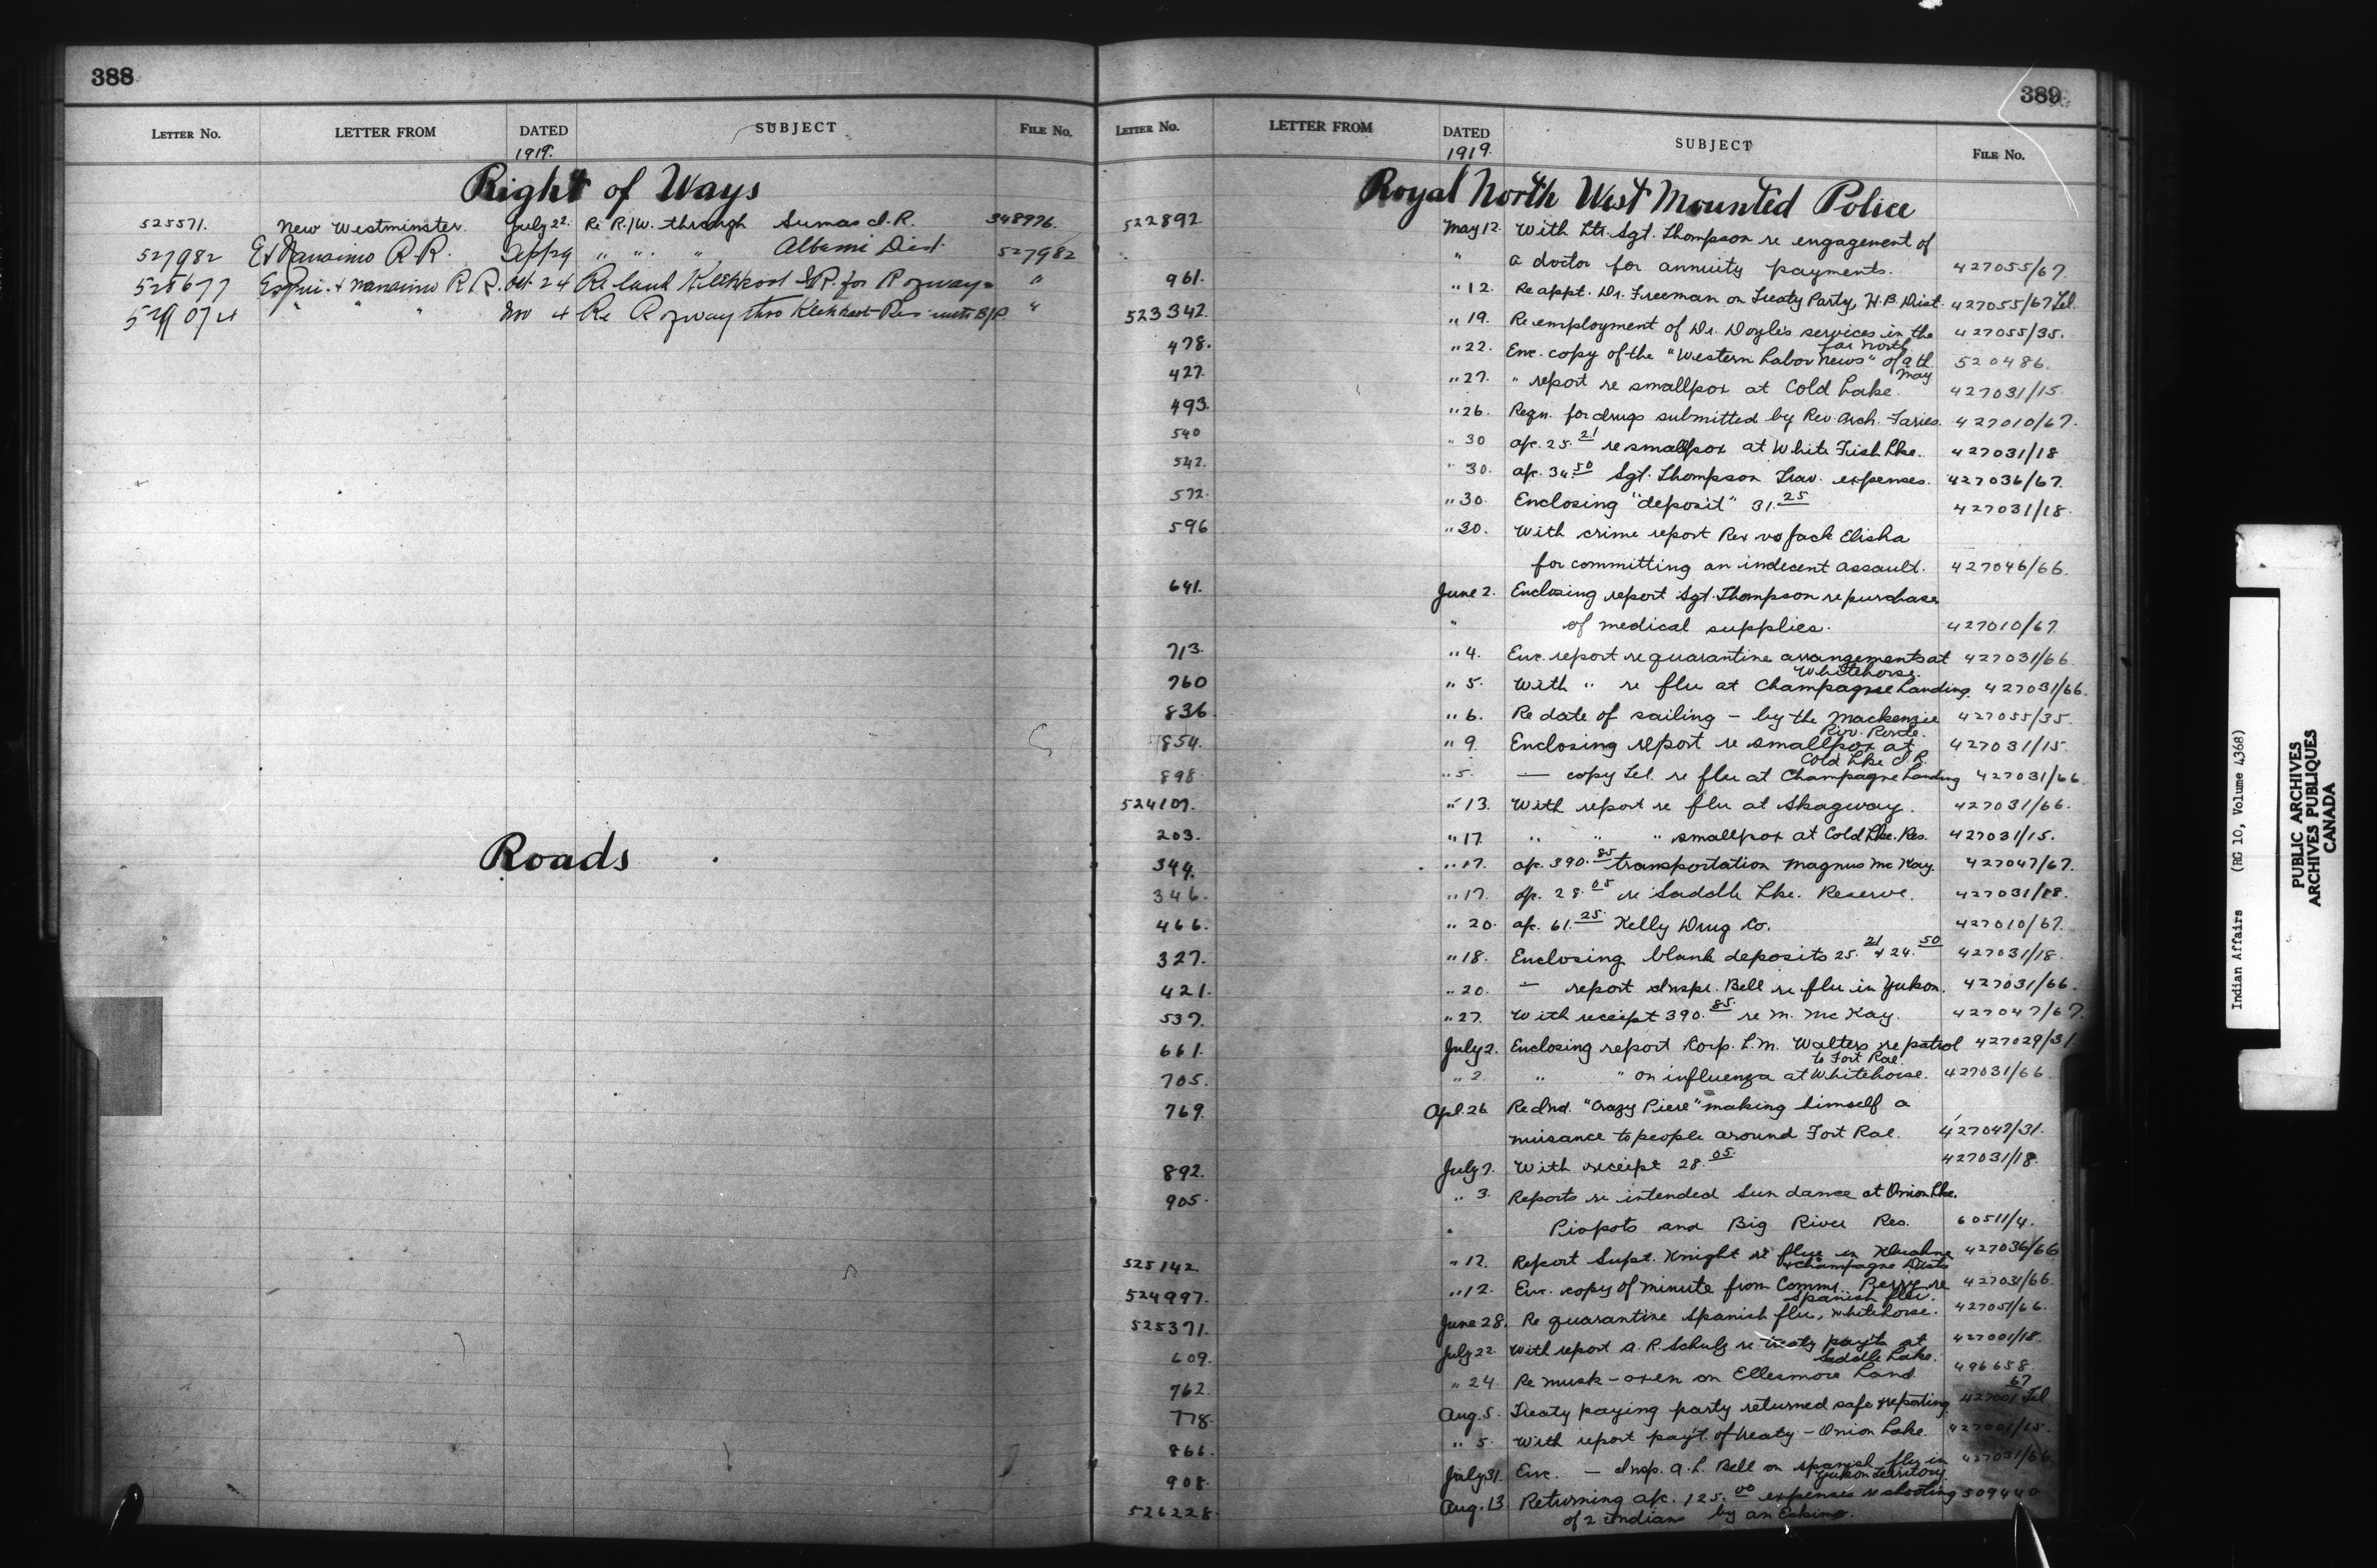 388
LETTER No. LETTER FROM DATED SUBJECT FILE No.
1919.
Right of Ways
525571. New Westminster. July 22. Re R./W. through Sumas I.R. 348976.
527982 E & Nanaimo R.R. Sept 29 " " " Alberni Dist. 527982
528677 Esqui. & Nanaimo R.R. Oct 24 Re land Klehkoot I.R. for R of way "
529074 " " " Nov 4 Re R of way thro Klehkoot Res with B/P. "
Roads
389
LETTER No. LETTER FROM DATED SUBJECT FILE No.
1919.
Royal North West Mounted Police
522892. May 12. With Ltr. Sgt. Thompson re engagement of
" a doctor for annuity payments. 427055/67.
961. " 12. Re appt. Dr. Freeman on Treaty Party, H.B. Dist. 427055/67 Tel.
523342. " 19. Re employment of Dr. Doyle's services in the 427055/35.
far North
478. " 22. Enc. copy of the "Western Labor News" of 9th. 520486.
May
427. " 27. " report re smallpox at Cold Lake. 427031/15.
493. " 26. Reqn. for drugs submitted by Rev. Arch. Faries. 427010/67.
540 " 30 a/c. 25.21 re smallpox at White Fish Lke. 427031/18
542. " 30. a/c. 34.50 Sgt. Thompson Trav. expenses. 427036/67.
572. " 30. Enclosing "deposit" 31.25 427031/18.
596 " 30. With crime report Rex vs Jack Elisha
for committing an indecent assault. 427046/66.
641. June 2. Enclosing report Sgt. Thompson re purchase
" of medical supplies. 427010/67.
713. " 4. Enc. report re quarantine arrangements at 427031/66.
Whitehorse.
760 " 5. With " re flu at Champagne Landing. 427031/66.
836. " 6. Re date of sailing - by the Mackenzie 427055/35.
Riv. Route.
854. " 9. Enclosing report re smallpox at 427031/15.
Cold Lke I.R.
898 " 5. — copy Tel. re flu at Champagne Landing 427031/66.
524107. " 13. With report re flu at Skagway. 427031/66.
203. " 17. " " " smallpox at Cold Lke. Res. 427031/15.
344. " 17. a/c. 390.85 transportation Magnus McKay. 427047/67.
346. " 17. a/c. 28.05 re Saddle Lke. Reserve. 427031/18.
466. " 20. a/c. 61.25 Kelly Drug Co. 427010/67.
327. " 18. Enclosing blank deposits 25.21 & 24.50 427031/18.
421. " 20. — report Inspr. Bell re flu in Yukon. 427031/66.
537. " 27. With receipt 390.85 re M. McKay. 427047/67.
661. July 2. Enclosing report Corp. L.M. Walters re patrol 427029/31
to Fort Rae.
705. " 2. " " on influenza at Whitehorse. 427031/66.
769. Apl. 26 Re Ind. "Crazy Piere" making himself a
nuisance to people around Fort Rae. 427042/31.
892. July 7. With receipt 28.05. 427031/18.
905. " 3. Reports re intended Sun dance at Onion Lke.
" Piopots and Big River Res. 60511/4.
525142. " 12. Report Supt. Knight re flu in Kluahne 427036/66
& Champagne Dists
524997. " 12. Enc. copy of minute from Commr. Perry re 427031/66.
Spanish flu.
525371. June 28. Re quarantine Spanish flu, Whitehorse. 427051/66.
609. July 22 With report A.R. Schulz re treaty pay'ts at 427001/18.
Saddle Lake.
762. " 24. Re musk-oxen on Ellesmore Land. 496658.
778. Aug. 5. Treaty paying party returned safe & reporting. 427001/67 Tel
866. " 5. With report pay't. of treaty - Onion Lake. 427001/15.
908. July 31. Enc. — Insp. A.L. Bell on Spanish flu in 427031/66
Yukon Territory.
526228. Aug. 13. Returning a/c. 125.00 expenses re shooting 509440
of 2 Indians by an Eskimo.
Indian Affairs (RG 10, Volume 4368)
PUBLIC ARCHIVES
ARCHIVES PUBLIQUES
CANADA